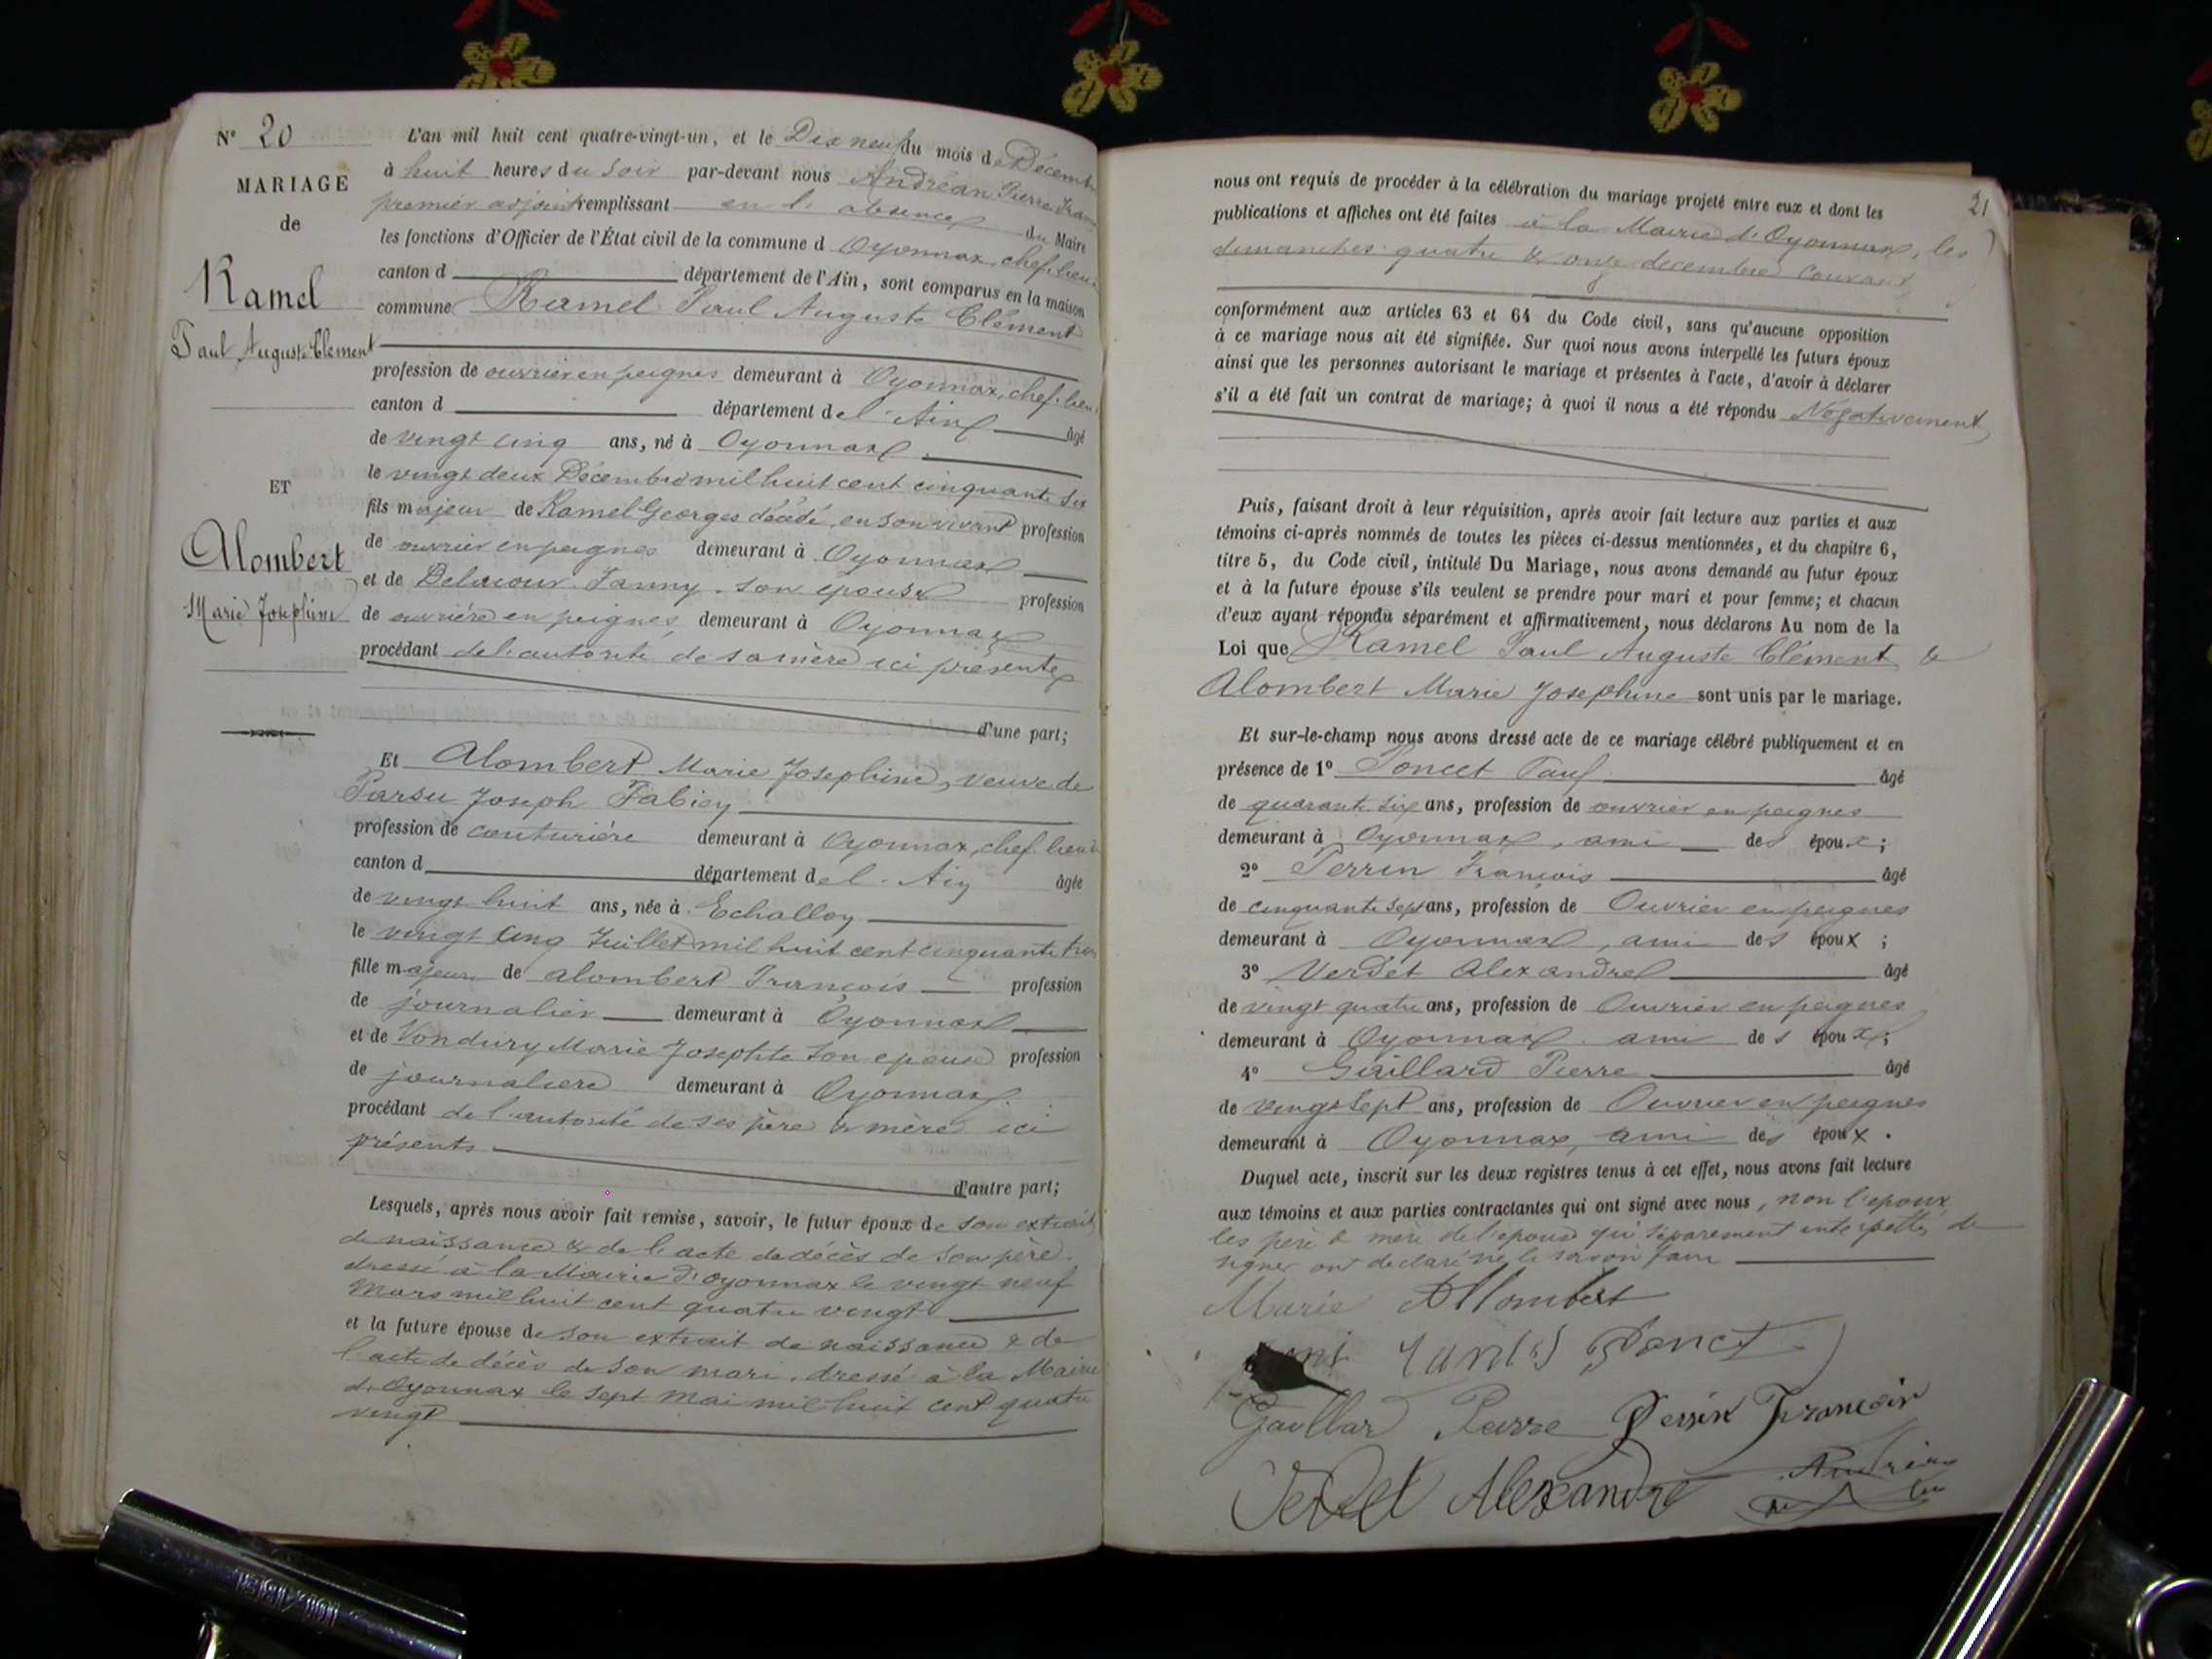 N° 20
MARIAGE
de
Ramel
Paul Auguste Clément
ET
Alombert
Marie Josephine
L'an mil huit cent quatre-vingt-un, et le Dix neuf du mois de Décembre
à huit heures du Soir par-devant nous Andréan Pierre
premier adjoint remplissant en l'absence du Maire
les fonctions d'Officier de l'État civil de la commune d Oyonnax, chef-lieu
canton d département de l'Ain, sont comparus en la maison
commune Ramel Paul Auguste Clément
profession de ouvrier en peignes demeurant à Oyonnax, chef-lieu
canton d département de l'Ain âgé
de vingt cinq ans, né à Oyonnax
le vingt deux Décembre mil huit cent cinquante six
fils majeur de Ramel Georges décédé, en son vivant profession
de ouvrier en peignes demeurant à Oyonnax
et de Fanny, son épouse profession
de ouvrière en peignes demeurant à Oyonnax
procédant de l'autorité de sa mère ici présente
d'une part;
Et Alombert Marie Josephine, veuve de
Joseph Fabien
profession de couturière demeurant à Oyonnax, chef-lieu
canton d département de l'Ain âgée
de vingt huit ans, née à Echallon
le vingt cinq Juillet mil huit cent cinquante trois
fille majeure de alombert François profession
de journalier demeurant à Oyonnax
et de Marie Josephte son epouse profession
de journaliere demeurant à Oyonnax
procédant de l'autorité de ses père & mère ici
présents
d'autre part;
Lesquels, après nous avoir fait remise, savoir, le futur époux de son extrait
de naissance & de l'acte de décès de son père,
dressé à la Mairie d'Oyonnax le vingt neuf
Mars mil huit cent quatre vingt
et la future épouse de son extrait de naissance & de
l'acte de décès de son mari, dressé à la Mairie
d'Oyonnax le sept Mai mil huit cent quatre
vingt
21
nous ont requis de procéder à la célébration du mariage projeté entre eux et dont les
publications et affiches ont été faites à la Mairie d'Oyonnax, les
dimanches quatre & onze décembre courant
conformément aux articles 63 et 64 du Code civil, sans qu'aucune opposition
à ce mariage nous ait été signifiée. Sur quoi nous avons interpellé les futurs époux
ainsi que les personnes autorisant le mariage et présentes à l'acte, d'avoir à déclarer
s'il a été fait un contrat de mariage; à quoi il nous a été répondu Négativement
Puis, faisant droit à leur réquisition, après avoir fait lecture aux parties et aux
témoins ci-après nommés de toutes les pièces ci-dessus mentionnées, et du chapitre 6,
titre 5, du Code civil, intitulé Du Mariage, nous avons demandé au futur époux
et à la future épouse s'ils veulent se prendre pour mari et pour femme; et chacun
d'eux ayant répondu séparément et affirmativement, nous déclarons Au nom de la
Loi que Ramel Paul Auguste Clément &
Alombert Marie Josephine sont unis par le mariage.
Et sur-le-champ nous avons dressé acte de ce mariage célébré publiquement et en
présence de 1° Poncet Paul âgé
de quarante six ans, profession de ouvrier en peignes
demeurant à Oyonnax, ami des époux;
2° Perrin François âgé
de cinquante sept ans, profession de Ouvrier en peignes
demeurant à Oyonnax, ami des époux;
3° Verdet Alexandre âgé
de vingt quatre ans, profession de Ouvrier en peignes
demeurant à Oyonnax ami des époux;
4° Gaillard Pierre âgé
de vingt sept ans, profession de Ouvrier en peignes
demeurant à Oyonnax, ami des époux.
Duquel acte, inscrit sur les deux registres tenus à cet effet, nous avons fait lecture
aux témoins et aux parties contractantes qui ont signé avec nous, non l'époux,
les père & mère de l'épouse qui séparement interpellés de
signer ont déclaré ne le savoir faire
Marie Allombert
Poncet
Gaillard Pierre Perrin François
Verdet Alexandre